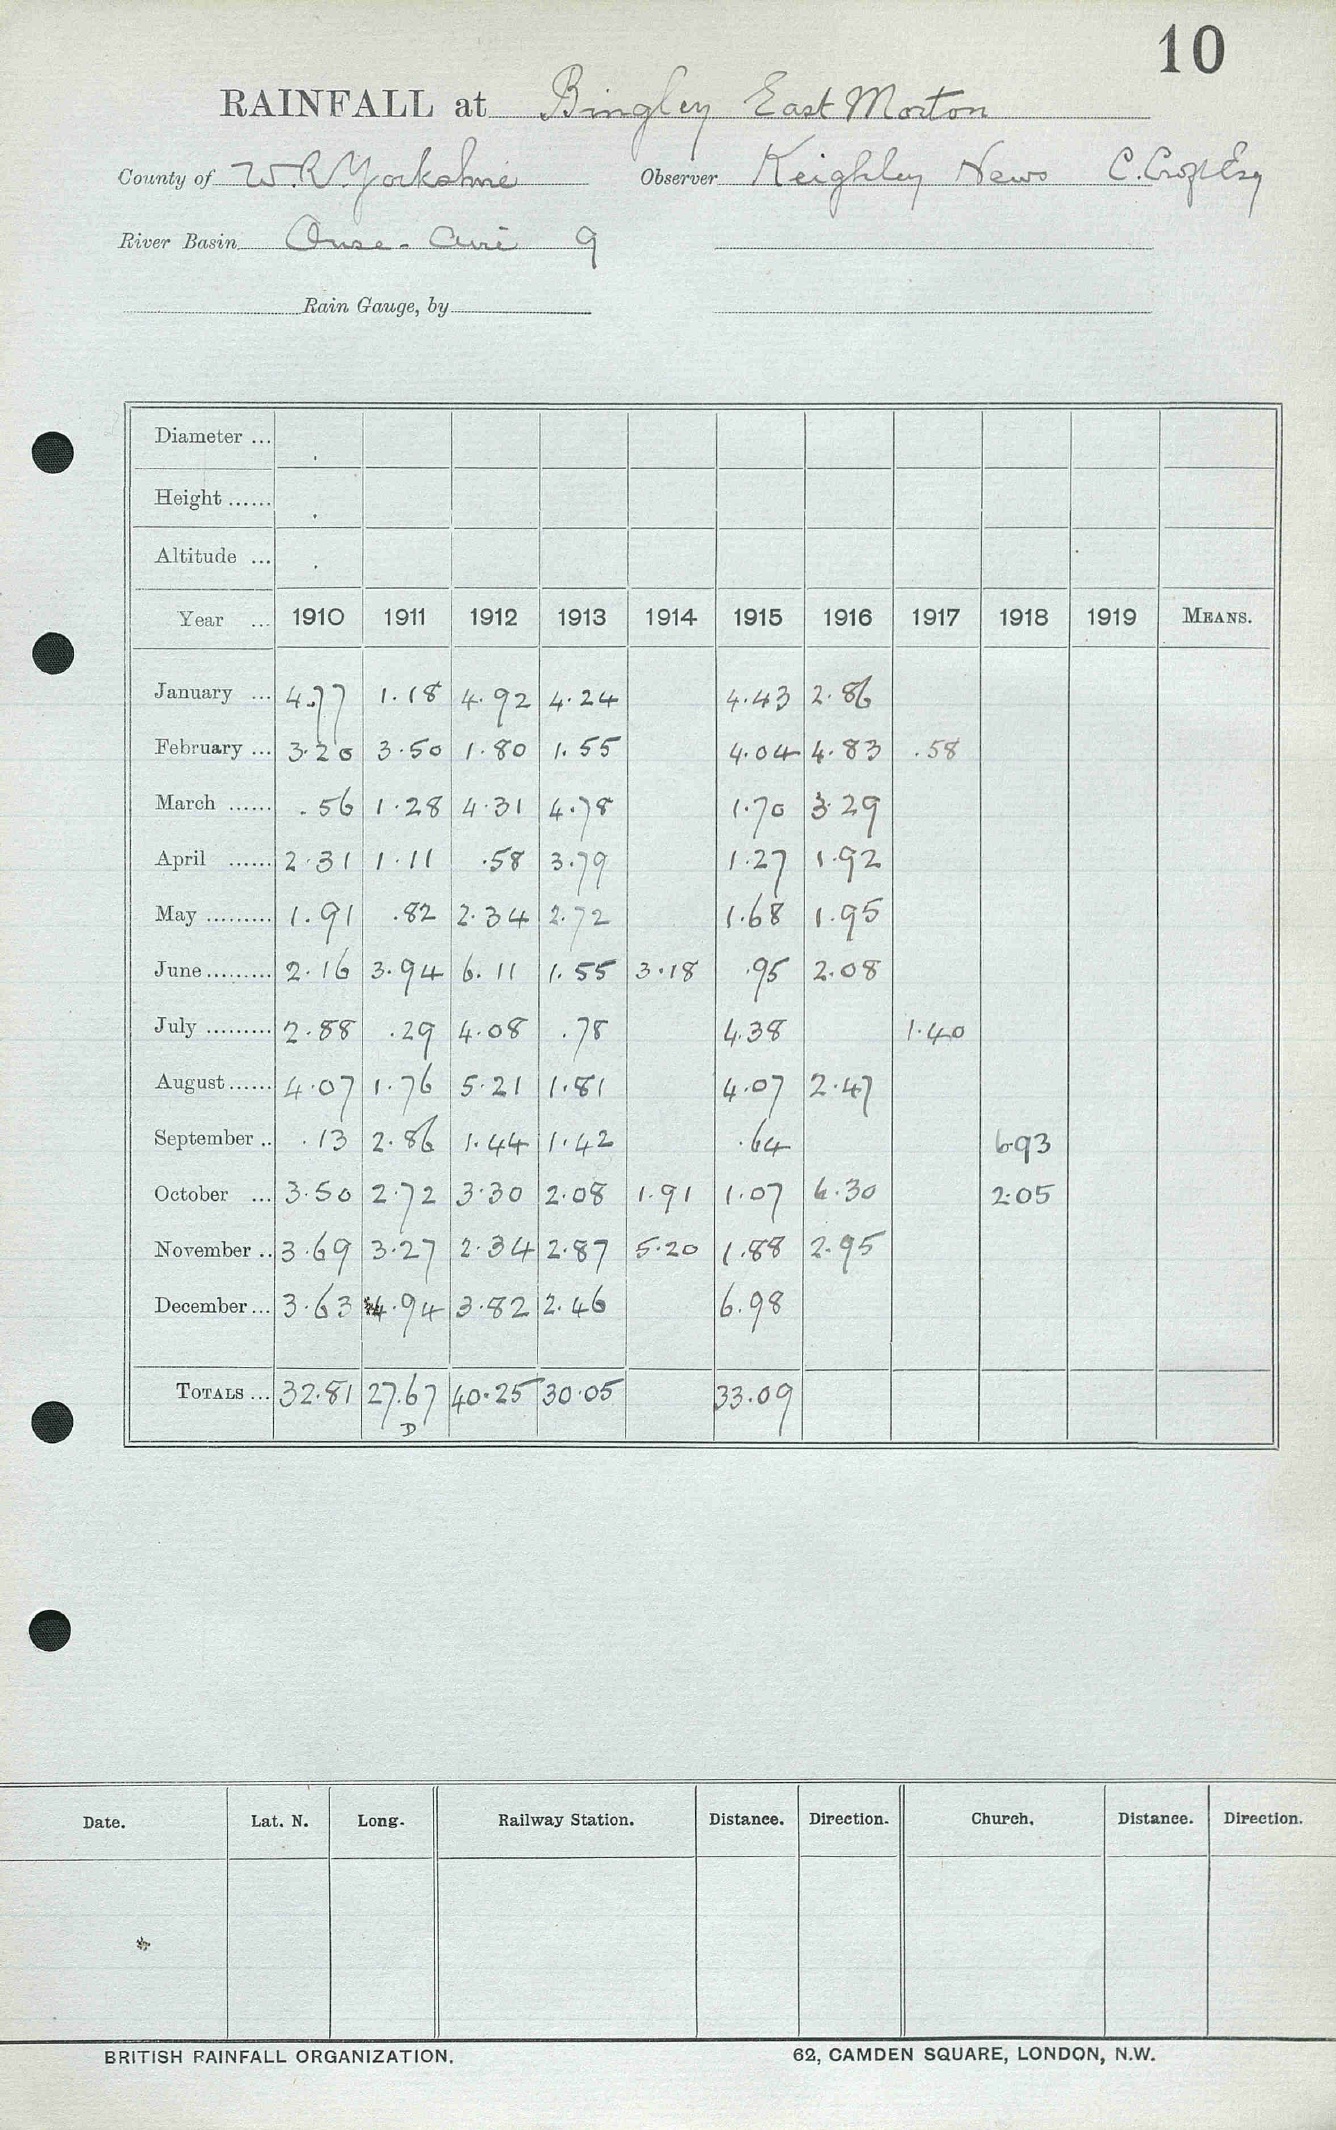 10
RAINFALL at Bingley East Morton
County of W.R. Yorkshire Observer Keighley News C. Esq
River Basin Ouse - Aire 9
Rain Gauge, by
Diameter ...
Height ......
Altitude ...
Year ... 1910 1911 1912 1913 1914 1915 1916 1917 1918 1919 MEANS.
January ... 4.77 1.18 4.92 4.24 4.43 2.86
February ... 3.20 3.50 1.80 1.55 4.04 4.83 .58
March ...... .56 1.28 4.31 4.78 1.70 3.29
April ...... 2.31 1.11 .58 3.79 1.27 1.92
May ......... 1.91 .82 2.34 2.72 1.68 1.95
June ......... 2.16 3.94 6.11 1.55 3.18 .95 2.08
July ......... 2.88 .29 4.08 .78 4.38 1.40
August ...... 4.07 1.76 5.21 1.81 4.07 2.47
September .. .13 2.86 1.44 1.42 .64 6.93
October ... 3.50 2.72 3.30 2.08 1.91 1.07 6.30 2.05
November .. 3.69 3.27 2.34 2.87 5.20 1.88 2.95
December ... 3.63 4.94 3.82 2.46 6.98
TOTALS ... 32.81 27.67 40.25 30.05 33.09
D
Date. Lat. N. Long. Railway Station. Distance. Direction. Church. Distance. Direction.
BRITISH RAINFALL ORGANIZATION. 62, CAMDEN SQUARE, LONDON, N.W.